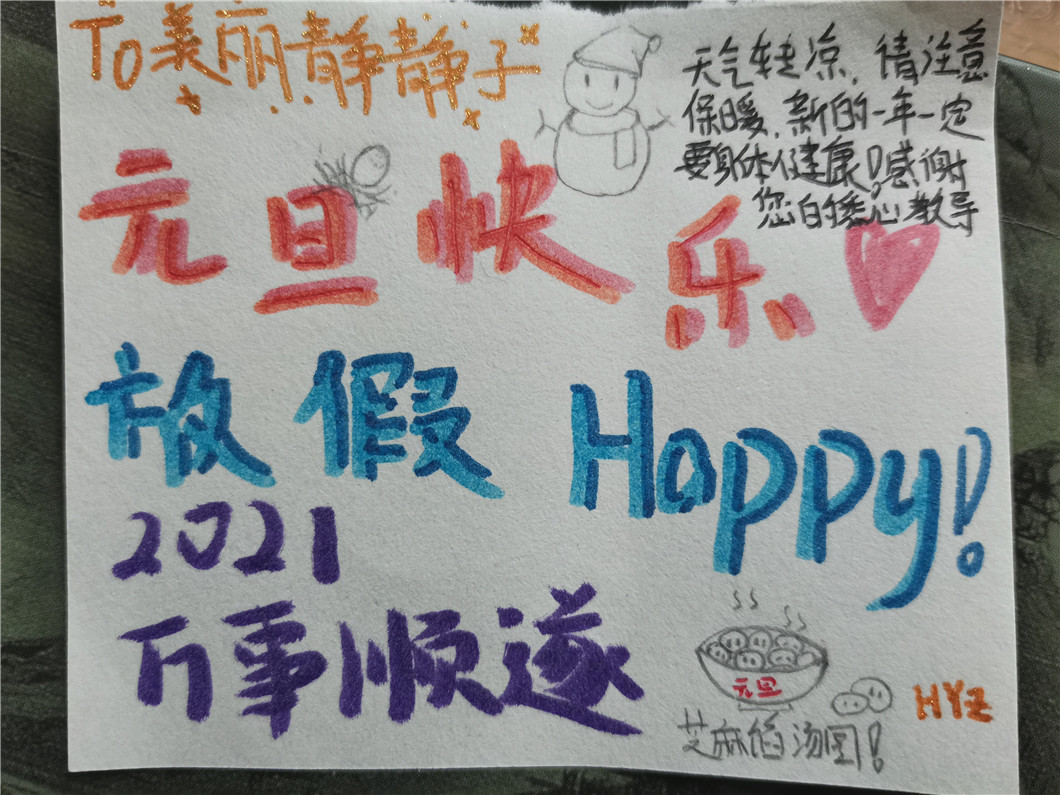 To美丽静静子
天气转凉，请注意
保暖，新的一年一定
要身体健康！感谢
您的悉心教导
元旦快乐
放假 Happy!
2021
万事顺遂
元旦
芝麻馅汤圆！
HYZ